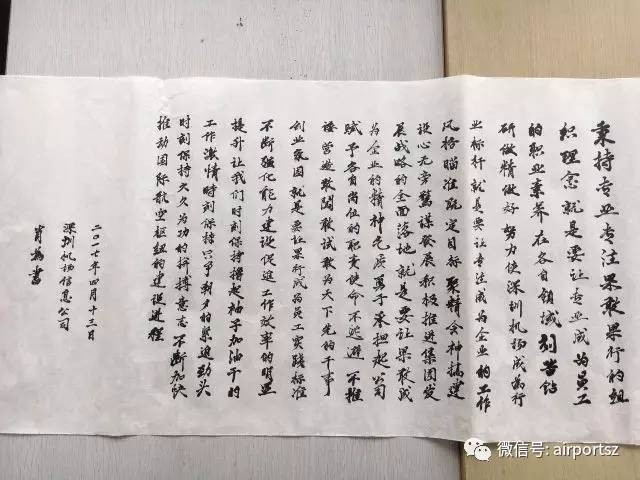 秉持专业专注果敢果行的组
织理念就是要让专业成为员工
的职业素养在各自领域刻苦钻
研做精做好努力使深圳机场成为行
业标杆就是要让专注成为企业的工作
风格瞄准既定目标聚精会神搞建
设心无旁骛谋发展积极推进集团发
展战略的全面落地就是要让果敢成
为企业的精神气质勇于承担起公司
赋予各自岗位的职责使命不逃避不推
诿营造敢闯敢试敢为天下先的干事
创业氛围就是要让果行成为员工实践标准
不断强化能力建设促进工作效率的明显
提升让我们时刻保持撸起袖子加油干的
工作激情时刻保持只争朝夕的紧迫劲头
时刻保持久久为功的拼搏意志不断加快
推动国际航空枢纽的建设进程
二〇一七年四月十三日
深圳机场信息公司
书
微信号: airportsz